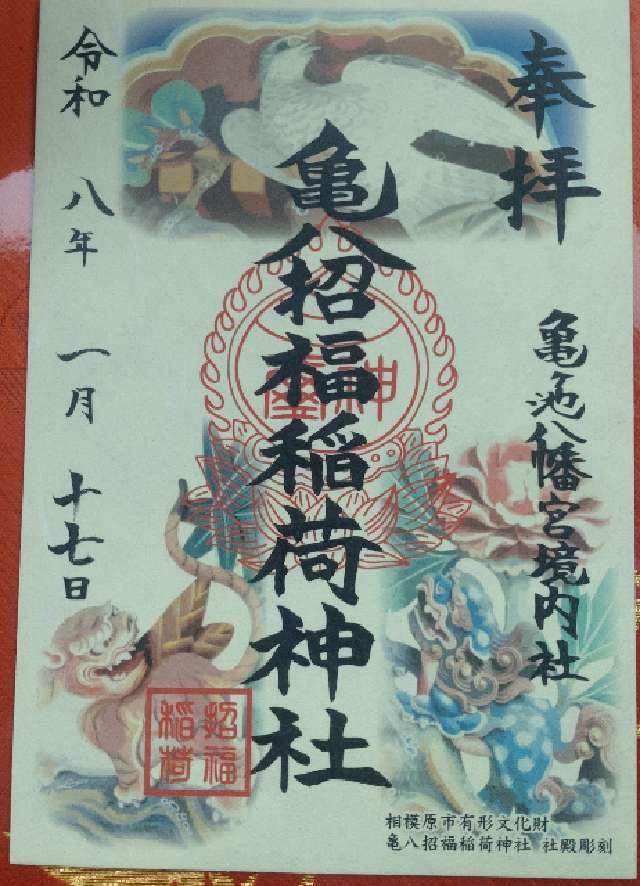 奉拝
亀ヶ池八幡宮境内社
亀八招福稲荷神社
神璽
招福
稲荷
令和 八年 一月 十七日
相模原市有形文化財
亀八招福稲荷神社 社殿彫刻